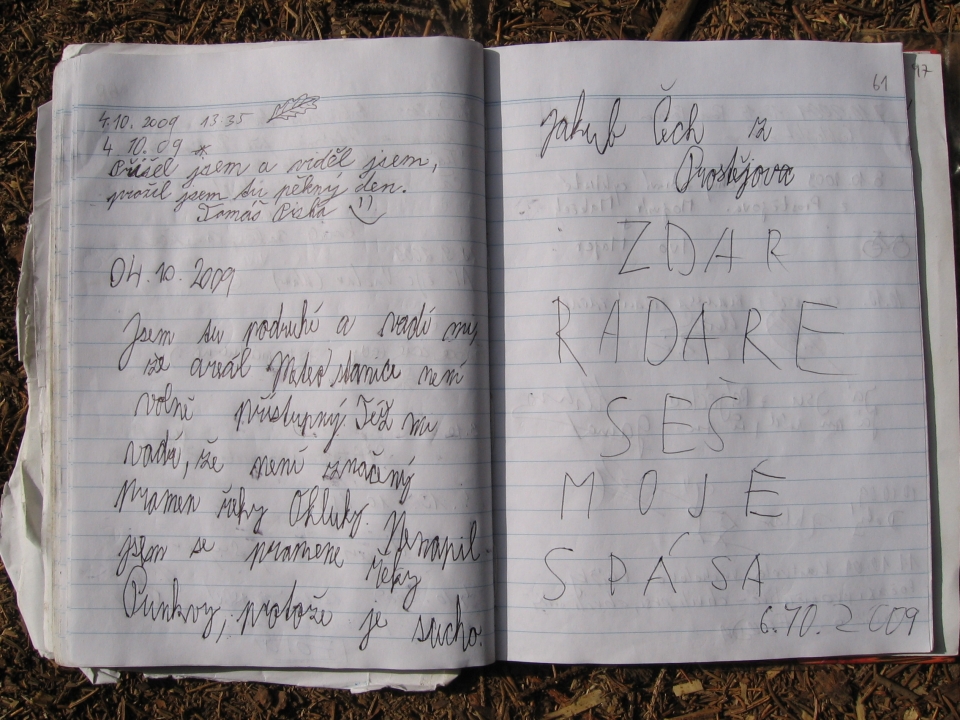 4.10. 2009 13 35
4. 10. 09 *
Přišel jsem a viděl jsem,
prožil jsem tu pěkný den.
Tomáš Piska
04. 10. 2009
Jsem tu podruhé a vadí mi,
že areál Meteostanice není
volně přístupný. Též mi
vadí, že není značený
pramen řeky Okluky. Nenapil
jsem se pramene řeky
Punkvy, protože je sucho.
61
Jakub Čech z
Prostějova
ZDAR
RADARE
SEŠ
MOJE
SPÁSA
6.10.2009
47